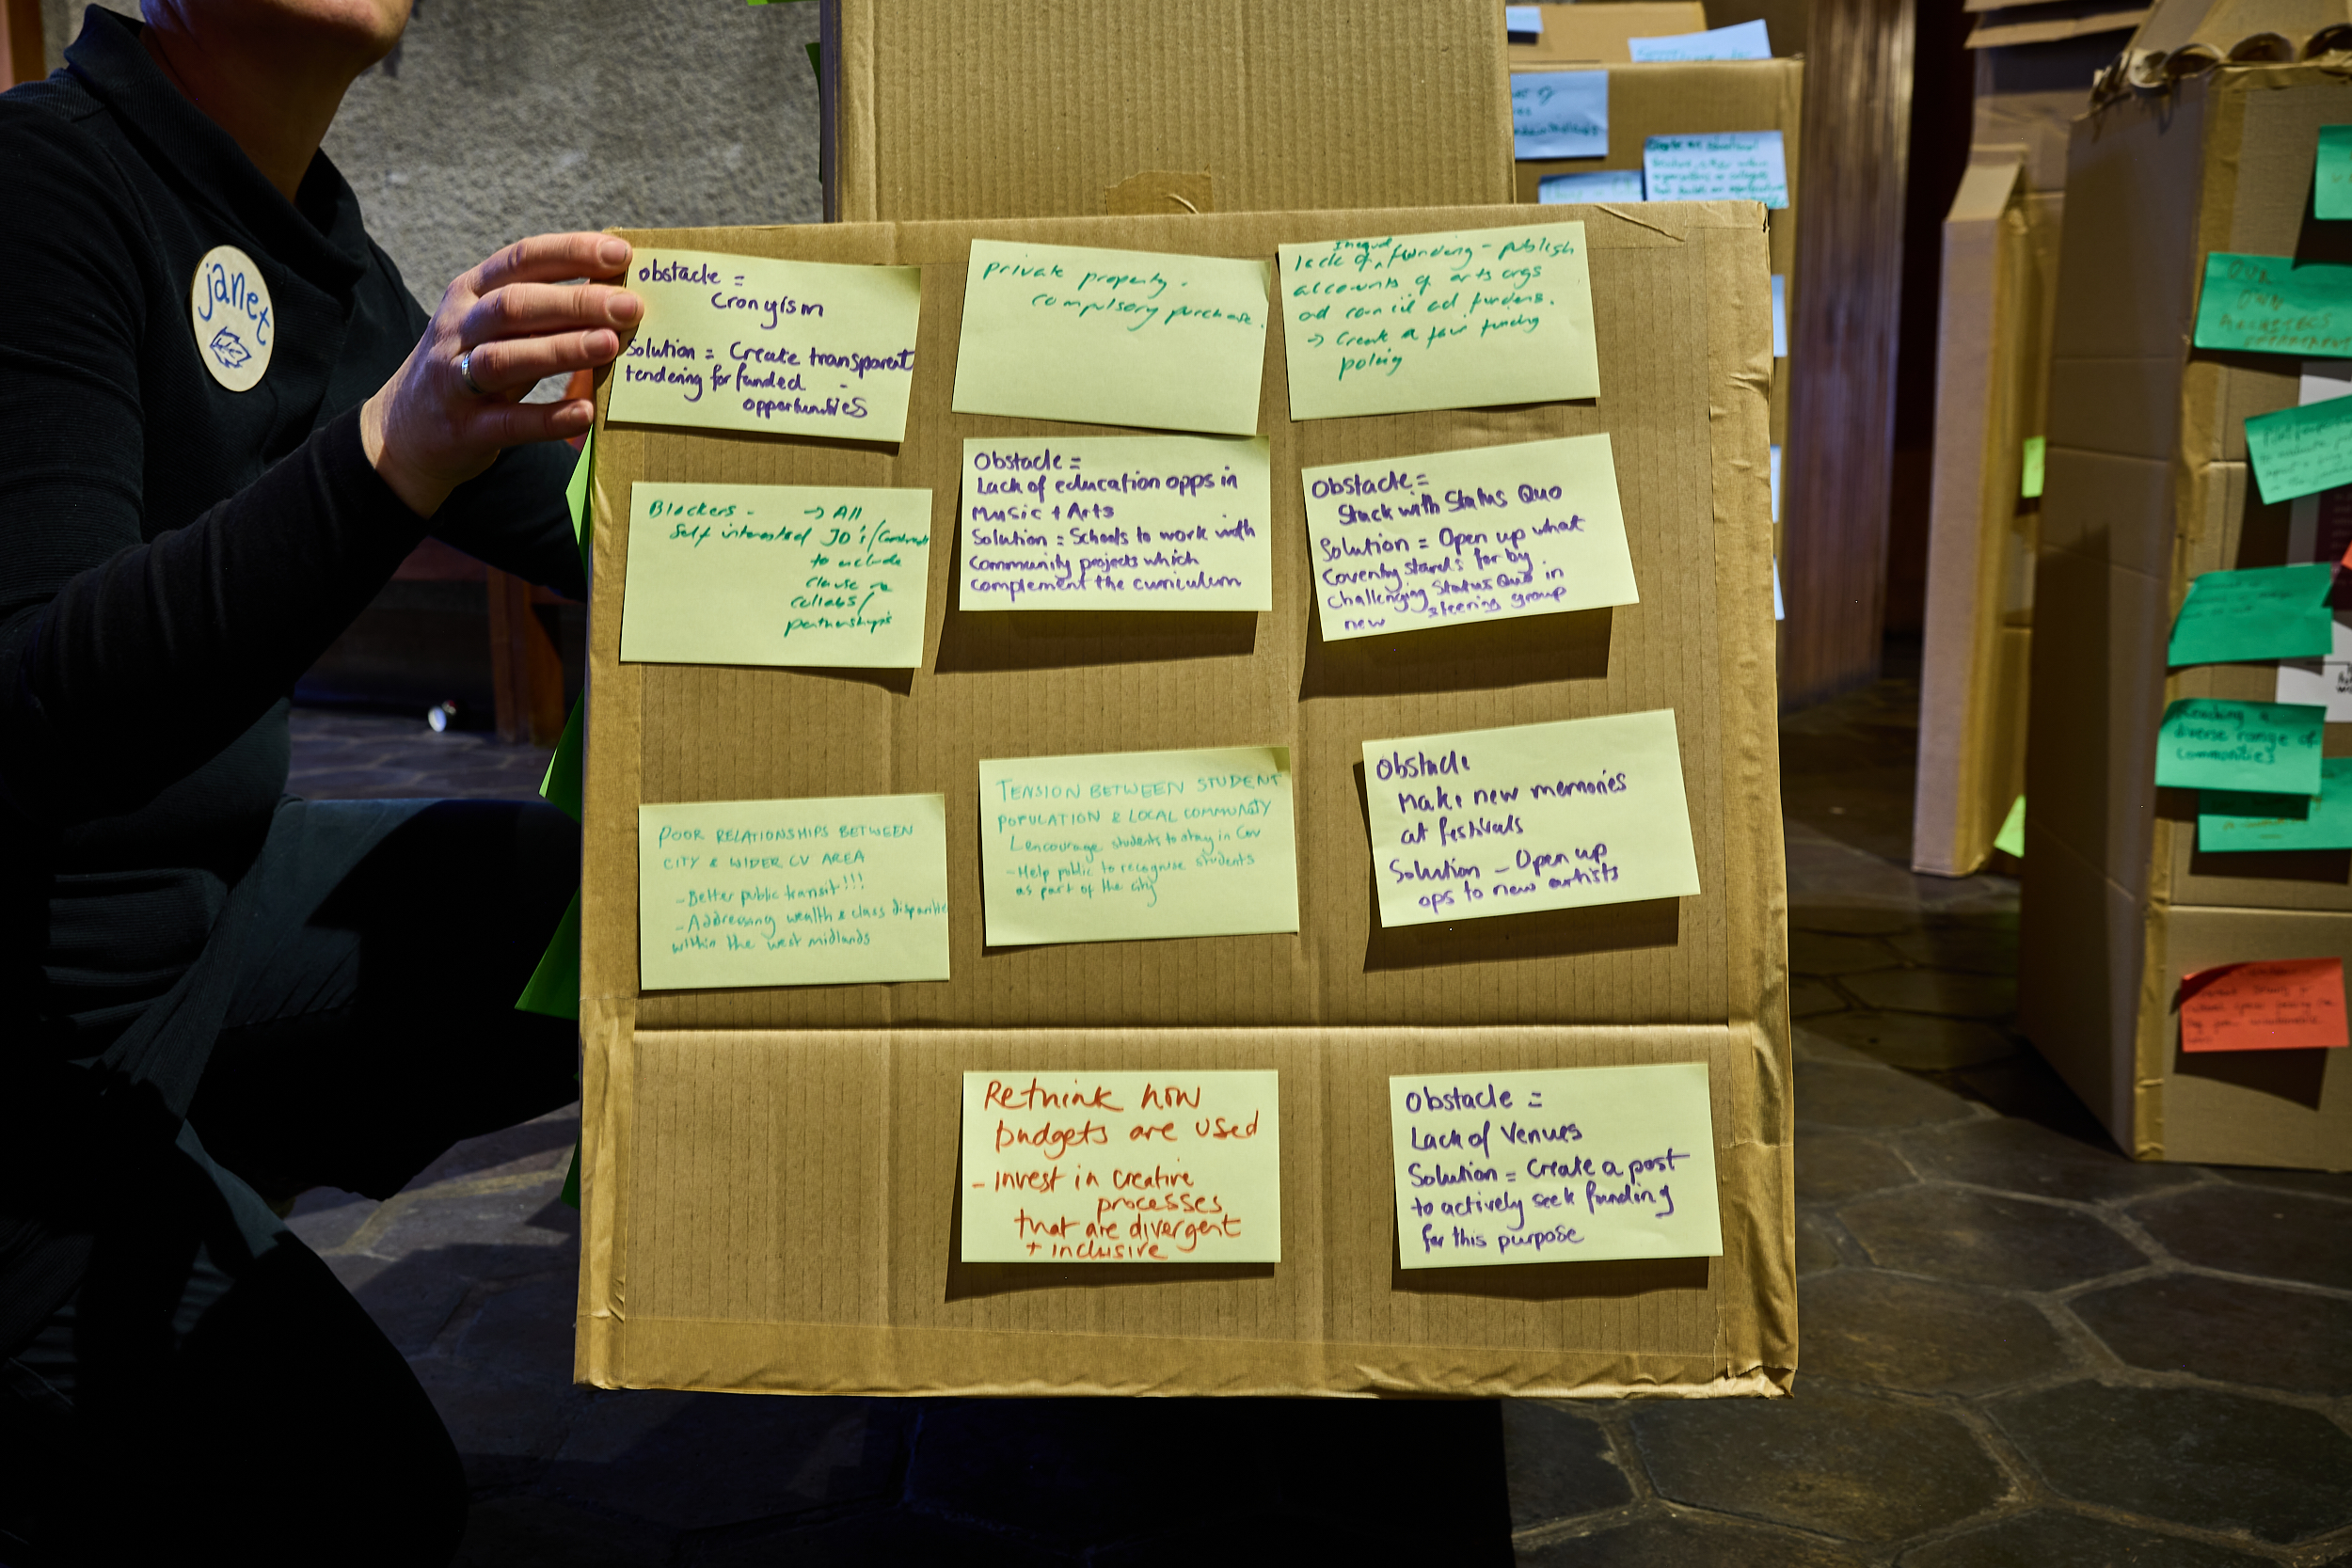 janet
Obstacle =
Cronyism
Solution = Create transparent
tendering for funded
opportunities
Private property -
compulsory purchase.
Inequal
lack of funding - publish
accounts of arts orgs
ad council ad funders.
→ Create a fair funding
policy
Blockers - → All
Self interested JD's/
to include
clause
collabs/
partnerships
Obstacle =
Lack of education opps in
Music + Arts
Solution = Schools to work with
community projects which
complement the curriculum
Obstacle =
Stuck with Status Quo
Solution = Open up what
Coventry stands for by
challenging Status Quo in
new steering group
POOR RELATIONSHIPS BETWEEN
CITY & WIDER CV AREA
- Better public transit!!!
- Addressing wealth & class disparities
within the west midlands
TENSION BETWEEN STUDENT
POPULATION & LOCAL COMMUNITY
encourage students to stay in Cov
- Help public to recognise students
as part of the city
Obstacle
Make new memories
at festivals
Solution - Open up
ops to new artists
Rethink how
budgets are used
- invest in creative
processes
that are divergent
+ inclusive
Obstacle =
Lack of Venues
Solution = Create a post
to actively seek funding
for this purpose
OUR
OWN
diverse range of
communities